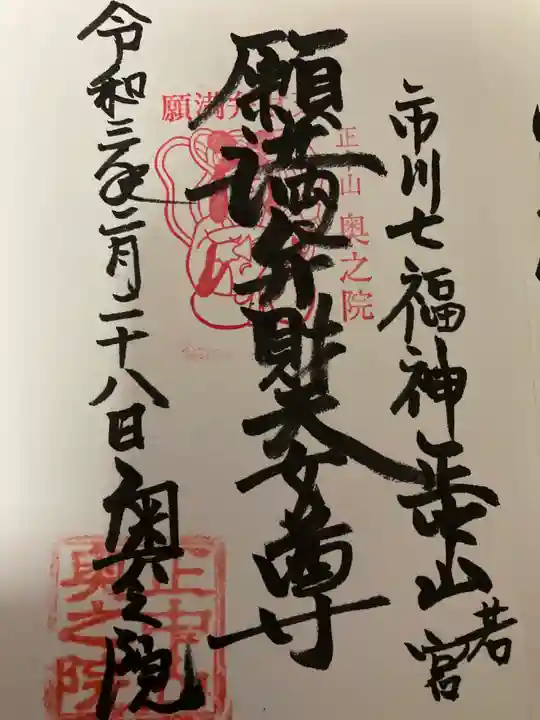 市川七福神 正中山
若宮
願満弁財天女尊
願満弁財天
正中山 奥之院
令和三年二月二十八日 奥之院
正中山
奥之院